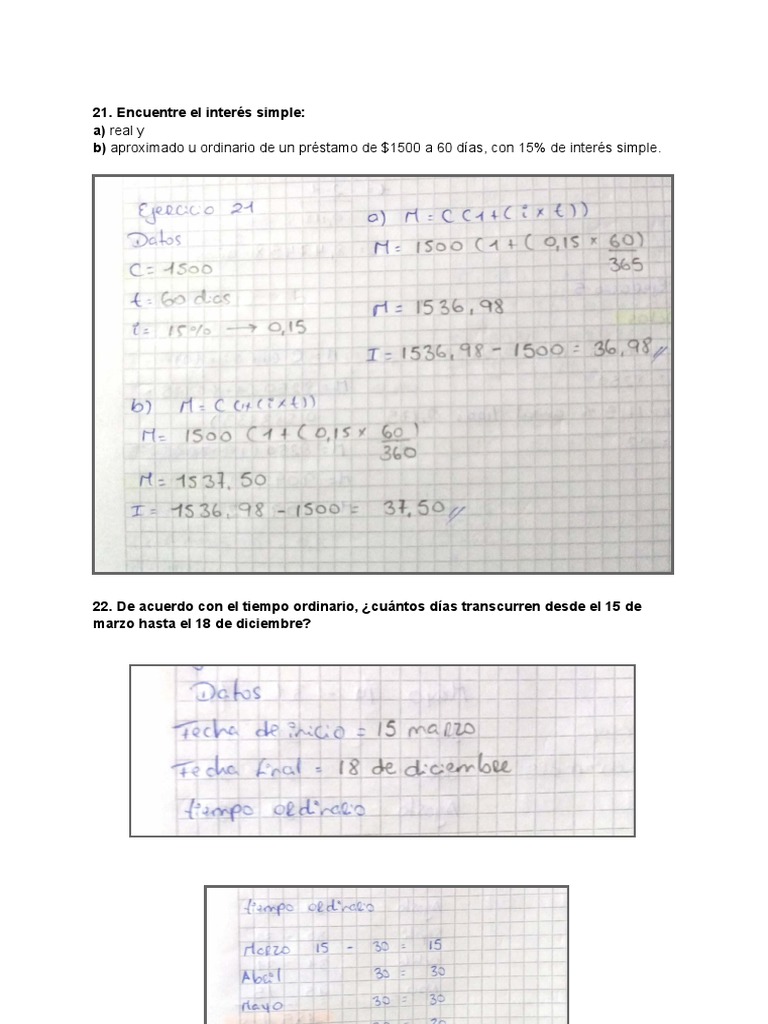 21. Encuentre el interés simple:
a) real y
b) aproximado u ordinario de un préstamo de $1500 a 60 días, con 15% de interés simple.
Ejercicio 21
Datos
C = 1500
t = 60 dias
i = 15% → 0,15
a) M = C (1 + ( i x t ))
M = 1500 (1 + ( 0,15 x 60)
365
M = 1536,98
I = 1536,98 - 1500 = 36,98 //
b) M = C (1+(ixt))
M = 1500 (1 + ( 0,15 x 60 )
360
M = 1537.50
I = 1536,98 - 1500 = 37,50 //
22. De acuerdo con el tiempo ordinario, ¿cuántos días transcurren desde el 15 de
marzo hasta el 18 de diciembre?
Datos
Fecha de inicio = 15 marzo
Fecha final = 18 de diciembre
tiempo ordinario
tiempo ordinario
Marzo 15 - 30 = 15
Abril 30 = 30
Mayo 30 = 30